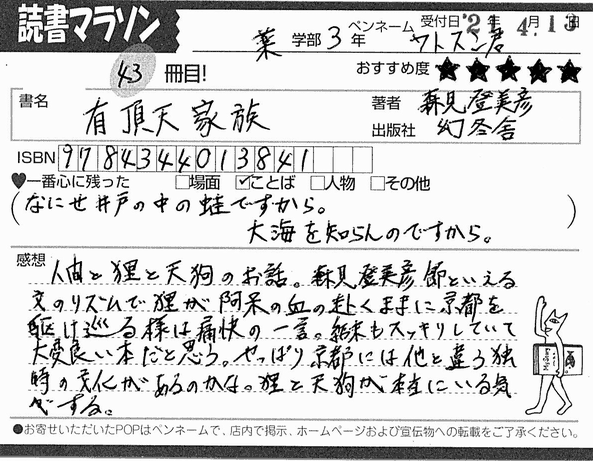 読書マラソン
受付日 '21年 4月13日
薬 学部 3 年 ペンネーム ワトスン君
43 冊目!
おすすめ度 ★★★★★
書名 有頂天家族
著者 森見登美彦
出版社 幻冬舎
ISBN 9784344013841
♥一番心に残った □場面 ☑ことば □人物 □その他
(なにせ井戸の中の蛙ですから。
大海を知らんのですから。)
感想 人間と狸と天狗のお話。森見登美彦節といえる
文のリズムで狸が阿呆の血の赴くままに京都を
駆け巡る様は痛快の一言。結末もスッキリしていて
大変良い本だと思う。やっぱり京都には他と違う独
時の文化があるのかな。狸と天狗が本当にいる気
がする。
●お寄せいただいたPOPはペンネームで、店内で掲示、ホームページおよび宣伝物への転載をご了承ください。